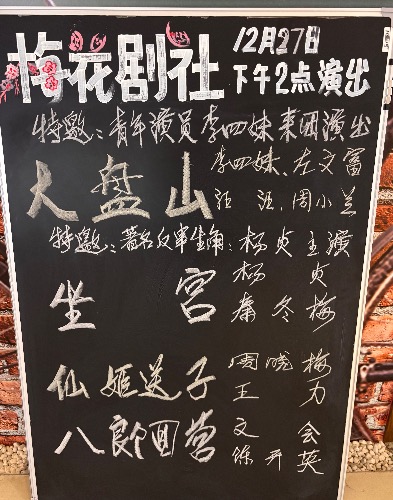 梅花剧社
12月27日
下午2点演出
特邀：青年演员李四妹来团演出
大盘山
李四妹、左文富
周小兰
特邀：著名生角：杨贞主演
坐宫
杨贞
秦冬梅
仙姬送子
周晓梅
王力
八郎回营
文会
英